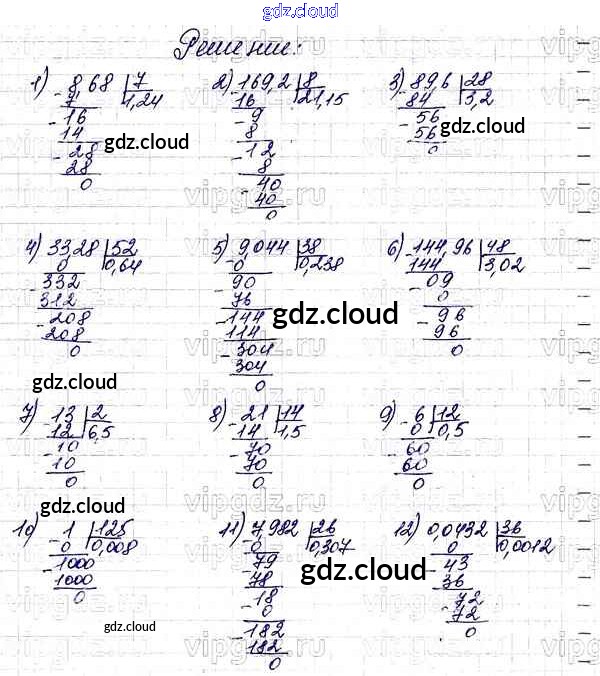 gdz.cloud
Решение:
1) 8,68 | 7 2) 169,2 | 8 3) 89,6 | 28
7 1,24 16 21,15 84 3,2
16 9 56
14 8 56
28 12 0
28 8
0 40
40
0
gdz.cloud gdz.cloud
4) 33,28 | 52 5) 9,044 | 38 6) 144,96 | 48
0 0,64 0 0,238 144 3,02
332 90 09
312 76 0
208 144 96
208 114 96
0 304 0
304
0
gdz.cloud
gdz.cloud
7) 13 | 2 8) 21 | 14 9) 6 | 12
12 6,5 14 1,5 0 0,5
10 70 60
10 70 60
0 0 0
gdz.cloud
10) 1 | 125 11) 7,982 | 26 12) 0,0432 | 36
0 0,008 0 0,307 0 0,0012
1000 79 43
1000 78 36
0 18 72
0 72
182 0
182
0
gdz.cloud
gdz.cloud